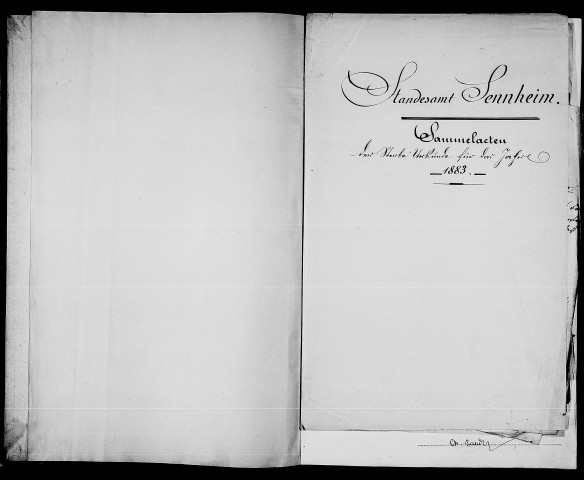 Standesamt Sennheim.
Sammelacten
der Sterbe Urkunde für das Jahr
1883.